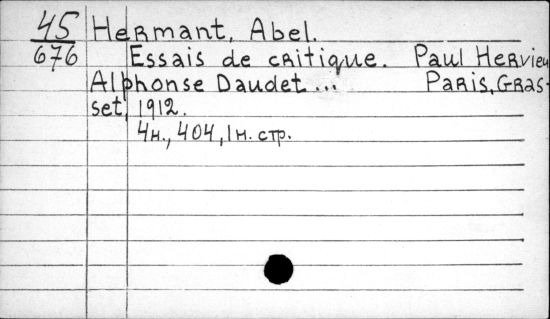 45 Hermant, Abel.
676 Essais de critique. Paul Hervieu
Alphonse Daudet... Paris, Gras-
set, 1912.
4н., 404, 1н. стр.